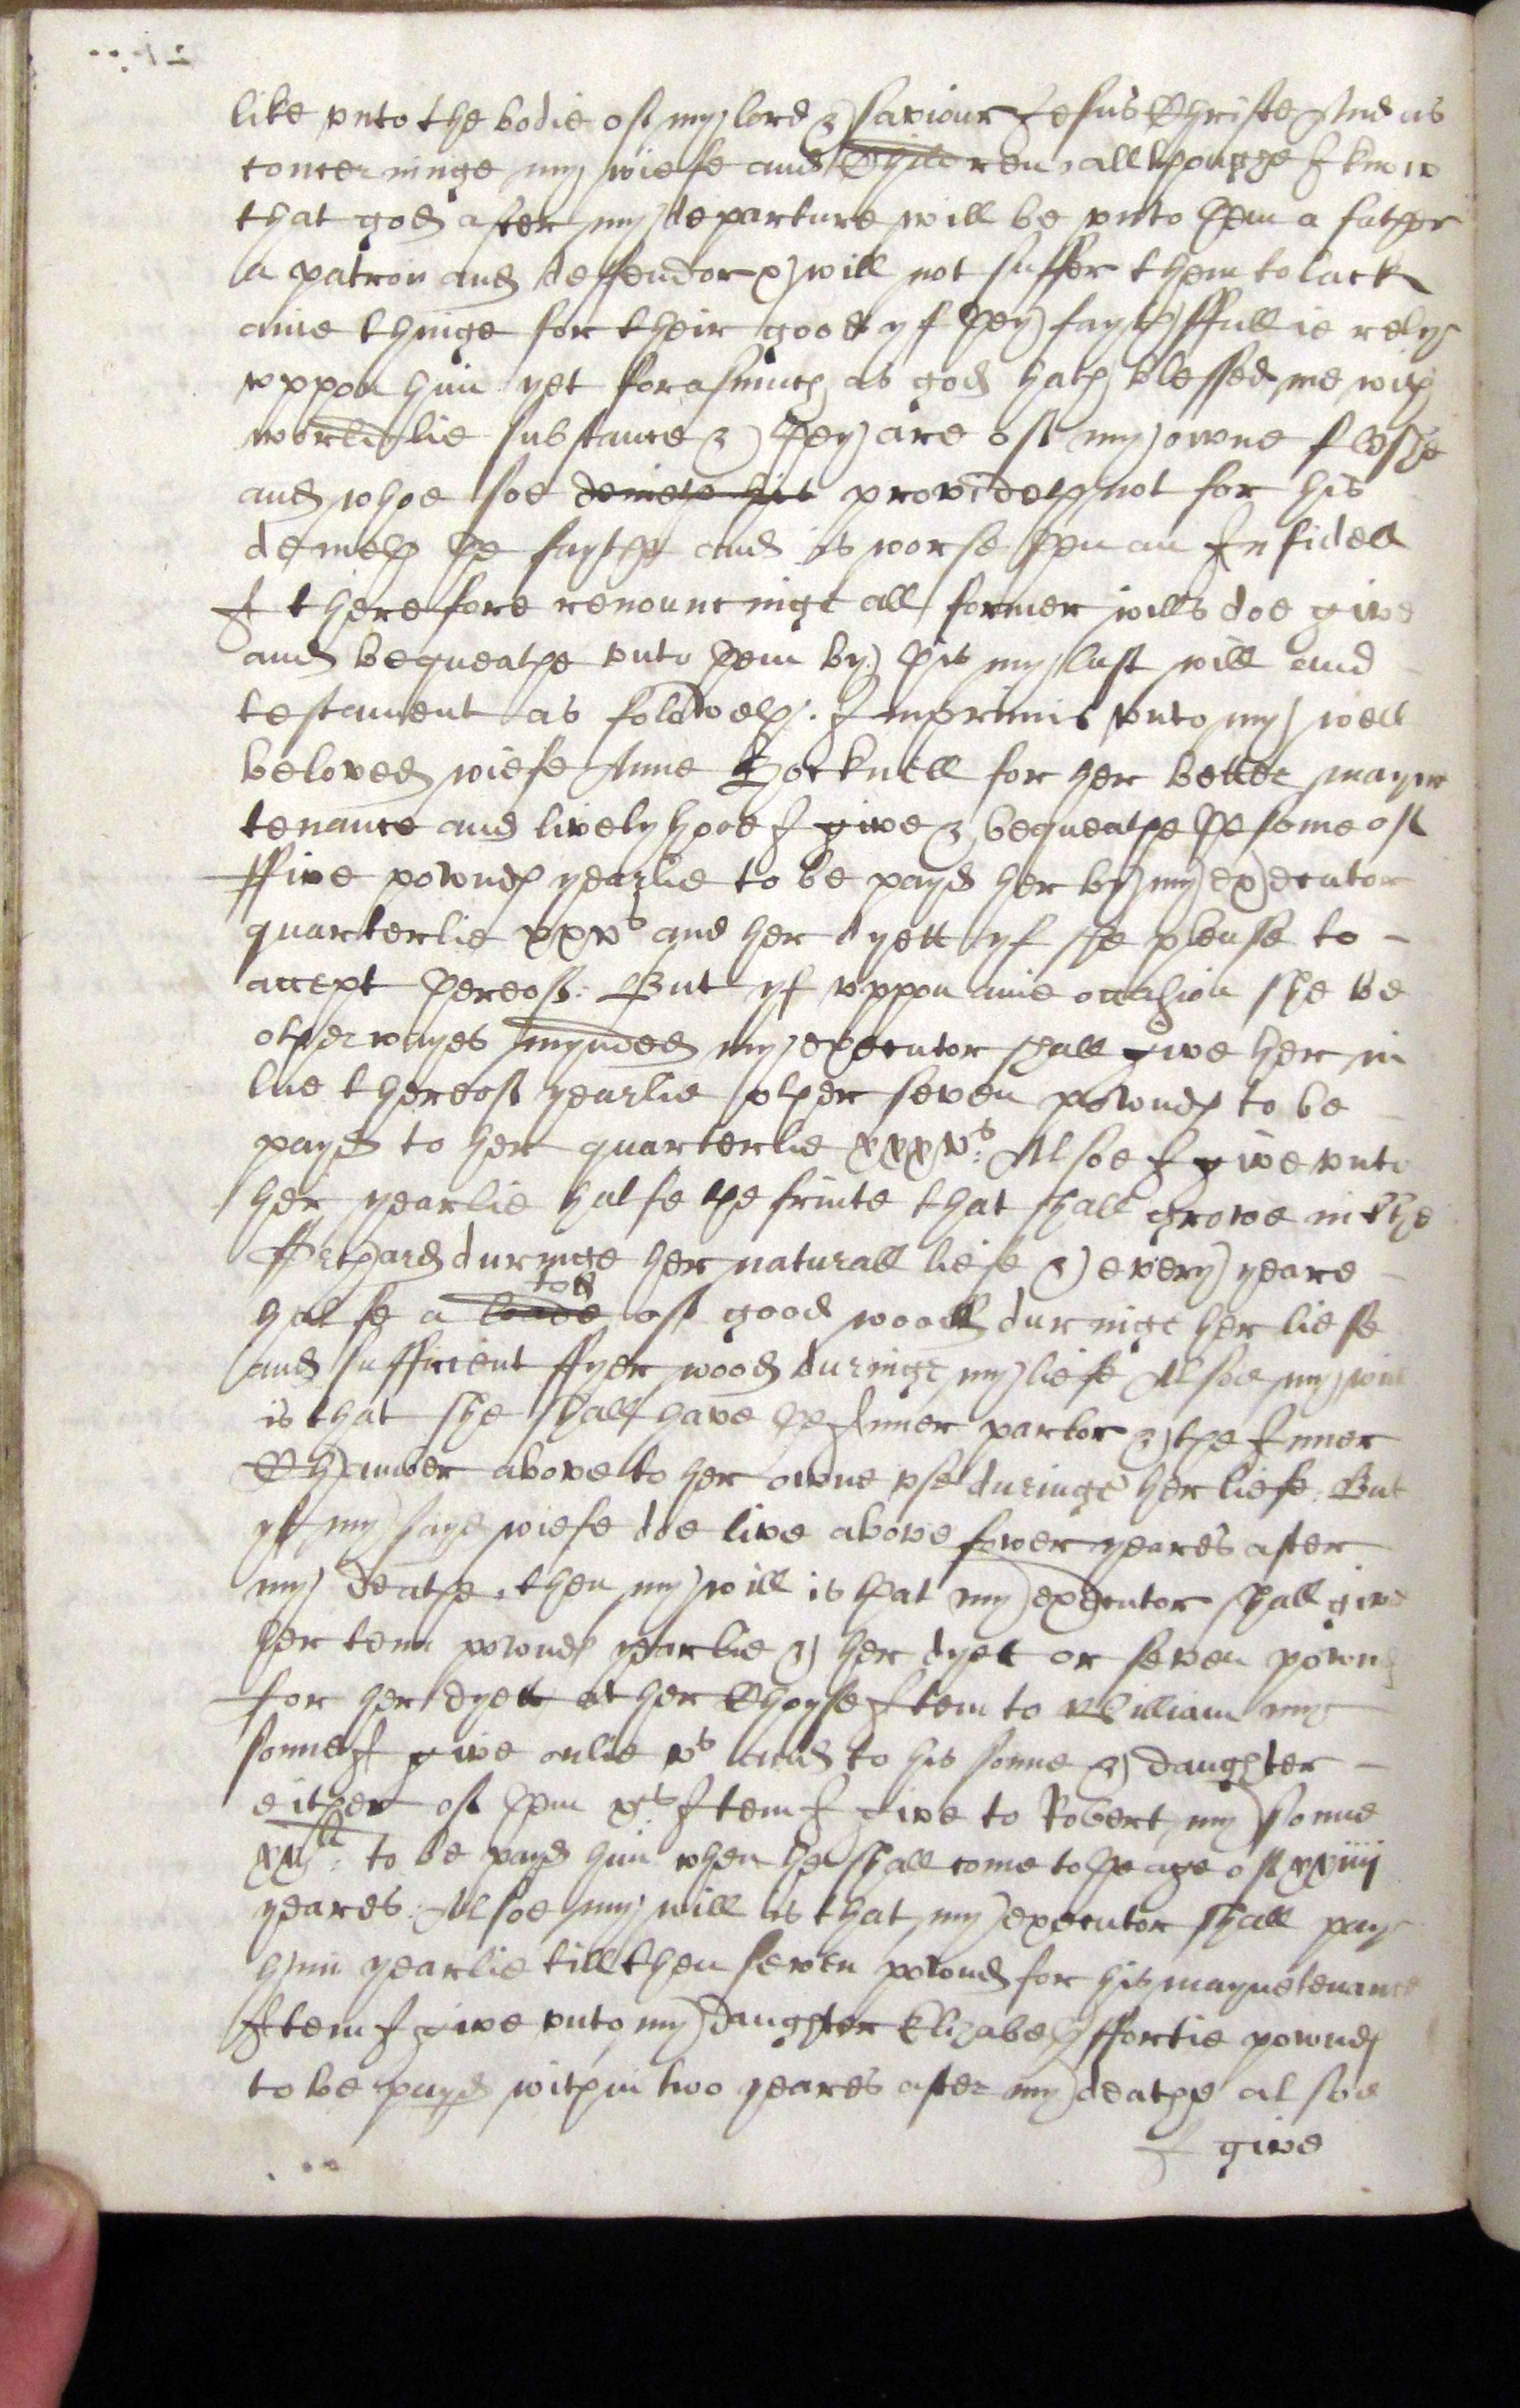 like vnto the bodie of my lord & saviour Jesus Christe And as
concerninge my wiefe and Children, allthoughe I know
that god after my departure will be vnto them a father
a patron and deffendor & will not suffer them to lack
anie thinge for their good yf they faythffullie relye
vppon him yet forasmuch as god hath blessed me with
worldlie substance & they are of my owne fleshe
and whoe soe denieth his provideth not for his
denieth the faythe and is worse then an Infidell
I therefore renouncinge all former wills doe give
and bequeathe vnto them by this my last will and
testament as foloweth. Inprimis vnto my well
beloved wiefe Anne Hocknell for her better mayn
tenance and livelyhood I give & bequeathe the some of
ffive pownds yearlie to be payd her by my executor
quarterlie xxvs and her dyett yf she please to
accept thereof: But yf vppon anie occasion she be
otherwayes mynded my executor shall give her in
lue thereof yearlie other seven pownds to be
payd to her quarterlie xxxvs: Alsoe I give vnto
her yearlie halfe the fruite that shall growe in the
Orchard duringe her naturall liefe & every yeare
ton
halfe a loade of good woode duringe her liefe
and sufficient ffyer wood duringe my liefe Alsoe my will
is that she shall have the Inner parlor & the Inner
Chamber above to her owne vse duringe her liefe: But
yf my sayd wiefe doe live above fower yeares after
my deathe, then my will is that my executor shall give
her tenn pownds yearlie & her dyet or seven pownds
for her dyett at her Choyse Item to William my
sonne I give onlie vs and to his sonne & daughter
either of them xs Item I give to Robert my sonne
to be payd him when he shall come to the age of xxiiii
yeares: Alsoe my will is that my executor shall pay
him yearlie till then seven pownds for his maynetenance
Item I give vnto my daughter Elizabeth ffortie pownds
to be payd within two yeares after my deathe alsoe
I give